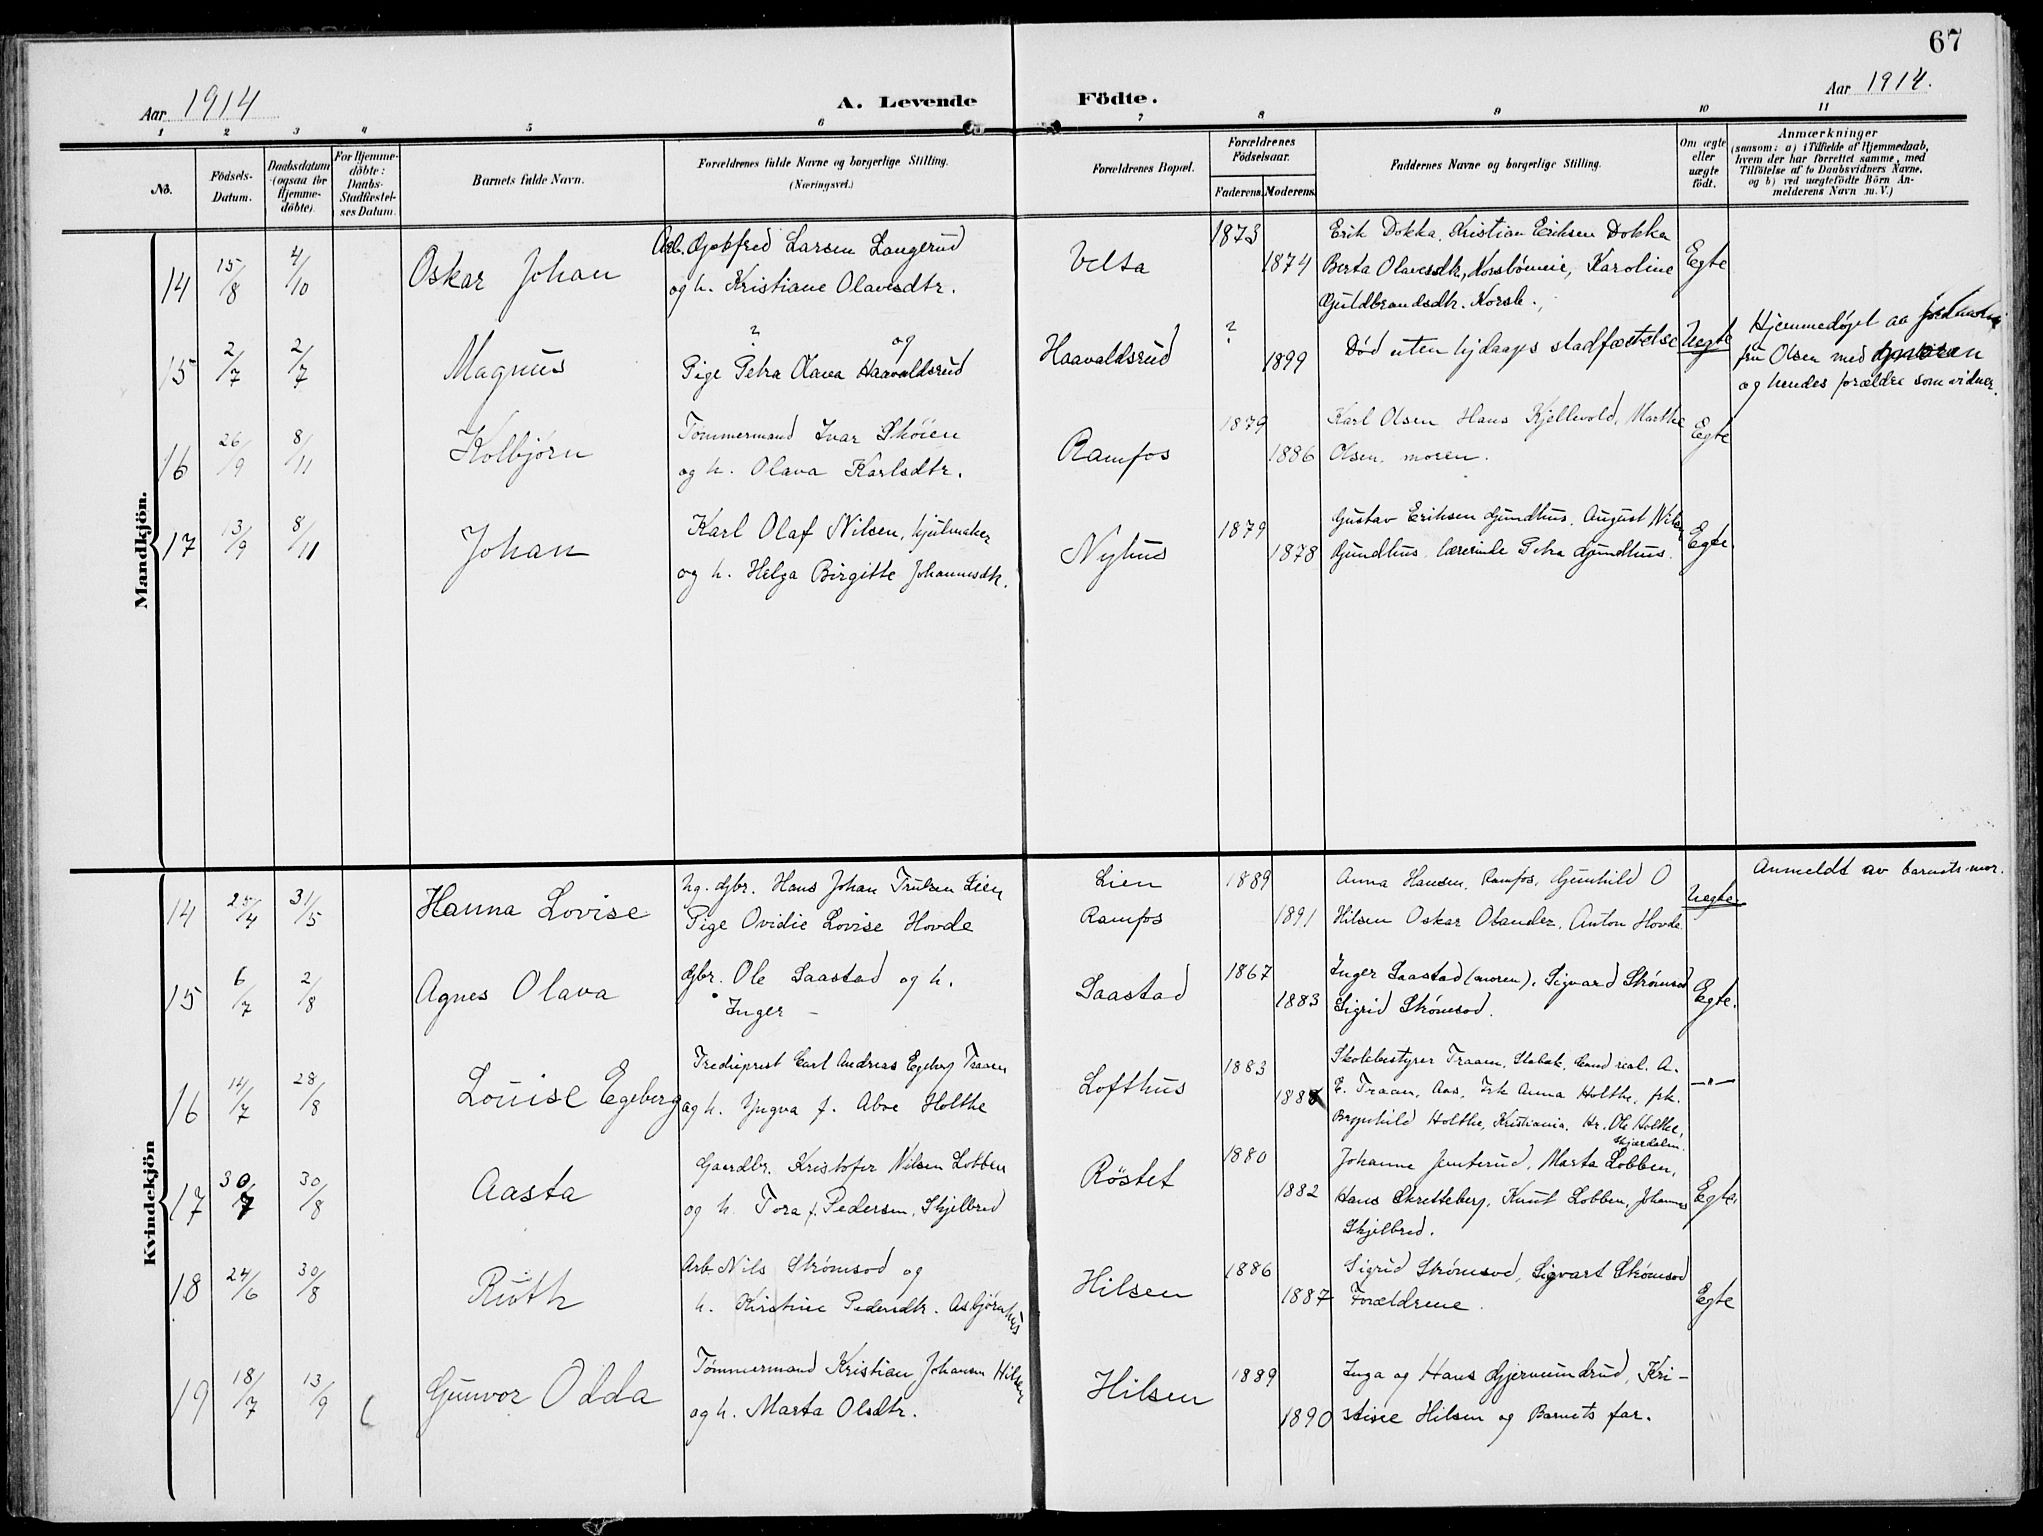 67
Aar 1914
A. Levende
Födte.
Aar 1914.
1 2 3 4 5 6 7 8 9 10 11
No.
Födsels-
Datum.
Daabsdatum
(ogsaa for
Hjemme-
döbte).
For Hjemme-
döbte:
Daabs-
Stadfæstel-
ses Datum.
Barnets fulde Navn.
Forældrenes fulde Navne og borgerlige Stilling.
(Næringsvei.)
Forældrenes Bopæl.
Forældrenes
Födselsaar.
Faderens.
Moderens.
Faddernes Navne og borgerlige Stilling.
Om ægte
eller
uægte
födt.
Anmærkninger
(saasom: a) i Tilfælde af Hjemmedaab,
hvem der har forrettet samme, med
Tilföielse af to Daabsvidners Navne,
og b) ved uægtefödte Börn An-
melderens Navn m. V.)
Mandkjön.
14 15/8 4/10
Oskar Johan
Arb. Gotfred Larsen Langerud
og h. Kristiane Olavesdtr.
Velta
1873
1874
Erik Dokka, Kristian Eriksen Dokka
Berta Olavesdtr, Korsbøneie, Karoline
Guldbrandsdtr. Korsb.
Egte
15 2/7 2/7
Magnus
? og
Pige Petra Olava Haavaldsrud
Haavaldsrud
?
1899
Død uten hjdaaps stadfæstelse
Uegte
Hjemmedøpt av jordmor
fru Olsen med
og hendes forældre som vidner.
16 26/9 8/11
Kolbjørn
Tømmermand Ivar Skøien
og h. Olava Karlsdtr.
Ramfos
1879
1886
Karl Olsen Hans Kjellevold, Marthe
Olsen, moren.
Egte
17 13/9 8/11
Johan
Karl Olaf Nilsen, hjulmaker
og h. Helga Birgitte Johannesdtr.
Nyhus
1879
1878
Gustav Eriksen Gundhus, August Nilsen
Gundhus, lærerinde Petra Gundhus.
Egte.
Kvindekjön
14 25/4 31/5
Hanna Lovise
Ug. gbr. Hans Johan Trulsen Lien
Pige Ovidie Lovise Hovde
Lien
Ramfos
1889
1891
Anna Hansen, Ramfos, Gunhild O
Hilsen Oskar Olander, Anton Hovde.
Uegte
Anmeldt av barnets mor.
15 6/7 2/8
Agnes Olava
Gbr. Ole Saastad og h.
Inger –
Saastad
1867
1883
Inger Saastad (moren), Sigvard Strømsod
Sigrid Strømsod.
Egte.
16 14/7 28/8
Louise Egeberg
Trediepræst Carl Andreas Egeberg Traaen
og h. Yngva f. Aboe Holthe
Lofthus
1883
188
Skolebestyrer Traaen, Stabæk, Cand real. A.
E. Traaen, Aas, Frk Anna Holthe, frk.
Borghild Holthe, Kristiania. Hr. Ole Holthe,
Skjærdalen.
—"—
17 30/7 30/8
Aasta
Gaardbr. Kristofer Nilsen Lobben
og h. Tora f. Pedersen, Skjelbred
Röstet
1880
1882
Johanne Jenterud, Marta Lobben,
Hans Skretteberg, Knut Lobben, Johannes
Skjelbred.
Egte.
18 24/6 30/8
Ruth
Arb. Nils Strømsod og
h. Kirstine Pedersdtr. Asbjørnhus
Hilsen
1886
1887
Sigrid Strømsod, Sigvart Strømsod
Forældrene.
Egte
19 18/7 13/9
Gunvor Odda
Tømmermand Kristian Johansen Hilsen
og h. Marta Olsdtr.
Hilsen
1889
1890
Inga og Hans Gjermundrud, Kri-
stine Hilsen og Barnets far.